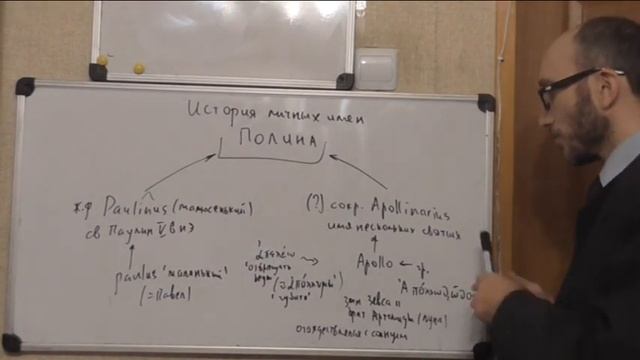 История личных имен
ПОЛИНА
ж.ф Paulinus (малюсенький)
св Паулин V в н э
paulus 'маленький'
(=Павел)
(?) сокр. Apollinarius
имя нескольких святых
Apollo ← гр.
'отвращать
беды'
'губить'
сын Зевса и
брат Артемиды (луна)
отождествлялся с солнцем